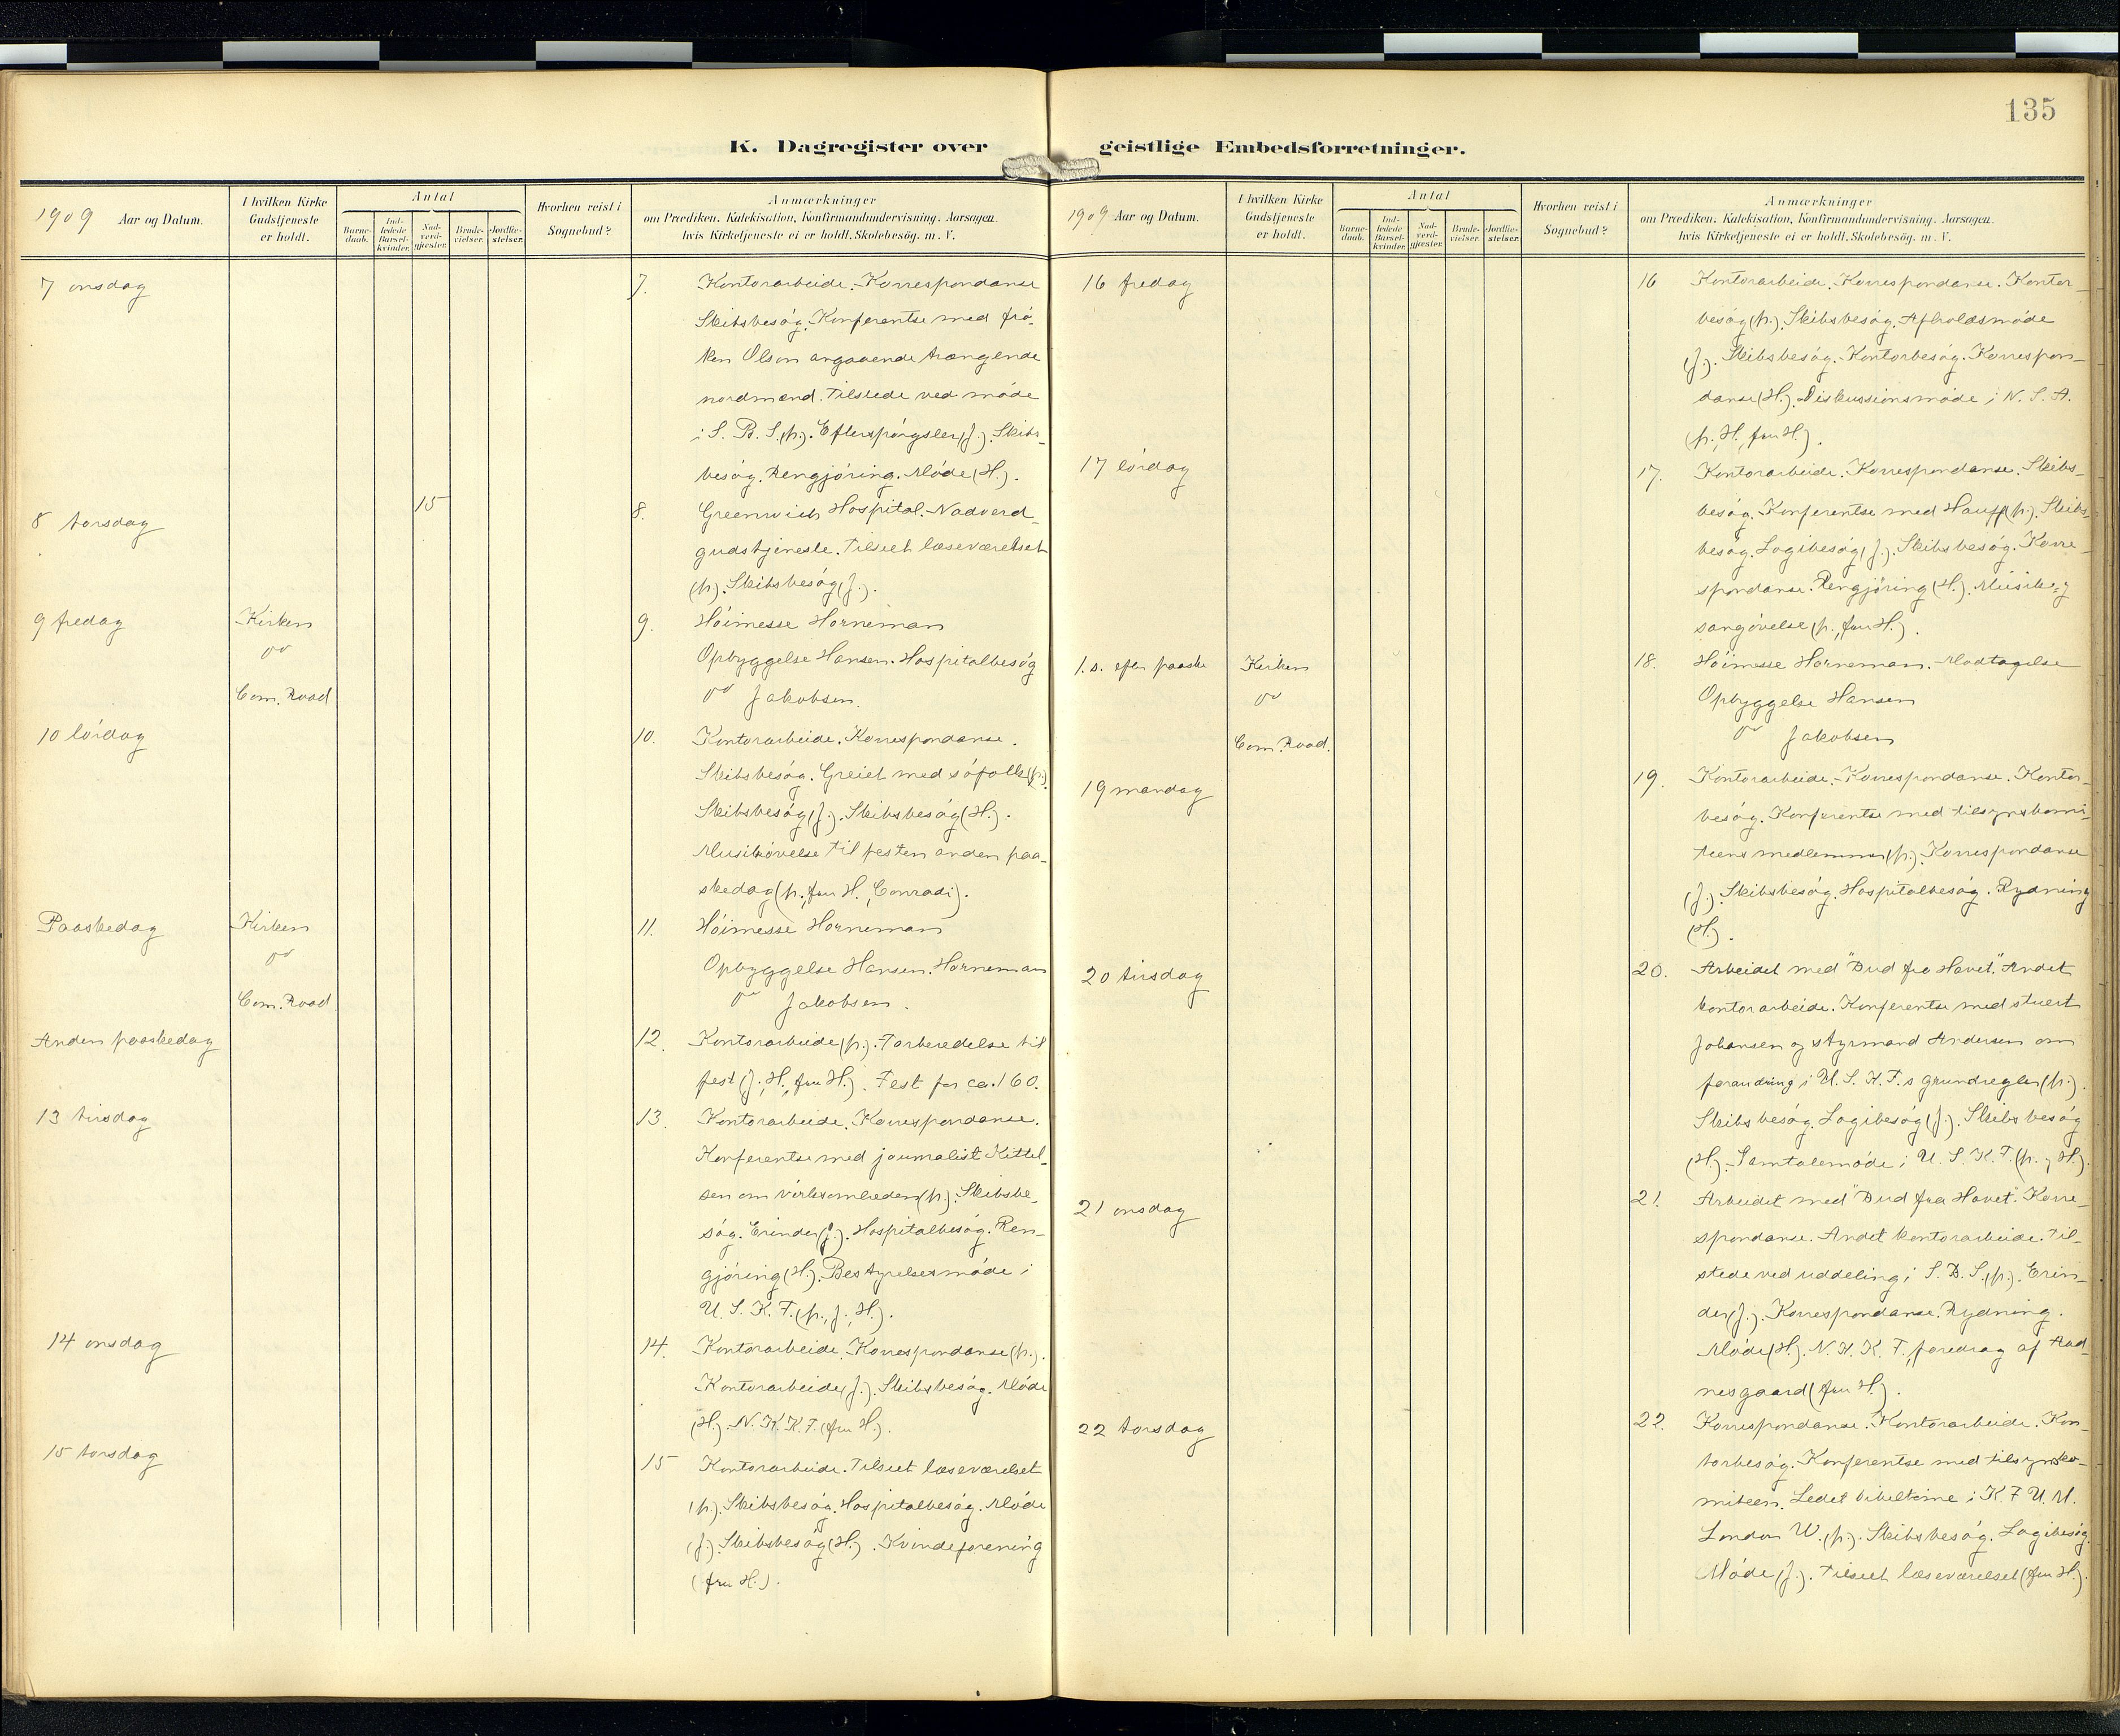 135
K. Dagregister over
1909 Aar og Datum.
I hvilken Kirke
Gudstjeneste
er holdt.
Antal
Barne-
daab.
Ind-
ledede
Barsel-
kvinder.
Nad-
verd-
gjæster.
Brude-
vielser.
Jordfæ-
stelser.
Hvorhen reist i
Sognebud?
Anmærkninger
om Prædiken, Katekisation, Konfirmandundervisning, Aarsagen,
hvis Kirketjeneste ei er holdt, Skolebesög, m. V.
7 onsdag
7. Kontorarbeide. Korrespondanse
Skibsbesóg. Konferentse med fró-
ken Olson angaaende trængende
nordmænd. Tilstede ved móde
i S. B. S. (p.). Efterspórgsler (J.). Skibs-
besóg. Rengjóring. Móde (H.).
8 torsdag
15
8. Greenwich Hospital. Nadverd-
gudstjeneste. Tilseet læseværelset
(p.). Skibsbesóg (J.).
9 fredag
Kirken
Com. Road
9. Hóimesse Horneman
Opbyggelse Hansen. Hospitalbesóg
Jakobsen.
10 lórdag
10. Kontorarbeide. Korrespondanse.
Skibsbesóg. Greiet med sófolk (p.).
Skibsbesóg (J.). Skibsbesóg (H.).
Musikóvelse til festen anden paa-
skedag (p., fru H., Conradi).
Paaskedag
Kirken
Com. Road
11. Hóimesse Horneman
Opbyggelse Hansen. Horneman
Jakobsen.
Anden paaskedag
12. Kontorarbeide (p.). Forberedelse til
fest (J., H., fru H.). Fest for ca. 160.
13 tirsdag
13. Kontorarbeide. Korrespondanse.
Konferentse med journalist Kittel-
sen om virksomheden (p.). Skibsbe-
sóg. Erinder (J.). Hospitalbesóg. Ren-
gjóring (H.). Bestyrelsesmóde i
U. S. K. F. (p., J., H.).
14 onsdag
14. Kontorarbeide. Korrespondanse (p.).
Kontorarbeide (J.). Skibsbesóg. Móde
(H.). N. K. K. F. (fru H.).
15 torsdag
15 Kontorarbeide. Tilseet læseværelset
(p.). Skibsbesóg. Hospitalbesóg. Móde
(J.). Skibsbesóg (H.). Kvindeforening
(fru H.).
geistlige Embedsforretninger.
1909 Aar og Datum.
I hvilken Kirke
Gudstjeneste
er holdt.
Antal
Barne-
daab.
Ind-
ledede
Barsel-
kvinder.
Nad-
verd-
gjæster.
Brude-
vielser.
Jordfæ-
stelser.
Hvorhen reist i
Sognebud?
Anmærkninger
om Prædiken, Katekisation, Konfirmandundervisning, Aarsagen,
hvis Kirketjeneste ei er holdt, Skolebesög, m. V.
16 fredag
16 Kontorarbeide. Korrespondanse. Kontor-
besóg (p.). Skibsbesóg. Afholdsmóde
(J.). Skibsbesóg. Kontorbesóg. Korrespon-
danse (H.). Diskussionsmóde i N. S. A.
(p., H., fru H.).
17 lórdag
17. Kontorarbeide. Korrespondanse. Skibs-
besóg. Konferentse med Hauff (p.). Skibs-
besóg. Logibesóg (J.). Skibsbesóg. Korre-
spondanse. Rengjóring (H.). Musik og
sangóvelse (p., fru H.).
1. s. efter paaske
Kirken
Com. Road.
18. Hóimesse Horneman. Modtagelse
Opbyggelse Hansen
Jakobsen
19 mandag
19. Kontorarbeide. Korrespondanse. Kontor-
besóg. Konferentse med tilsynskomi-
teens medlemmer (p.). Korrespondanse
(J.). Skibsbesóg. Hospitalbesóg. Rydning
(H.).
20 tirsdag
20. Arbeidet med "Bud fra Havet." Andet
kontorarbeide. Konferentse med stuert
Johansen og styrmand Andersen om
forandring i U. S. K. F.s grundregler (p.).
Skibsbesóg. Logibesóg (J.). Skibsbesóg
(H.). Samtalemóde i U. S. K. F. (p. og H.).
21 onsdag
21. Arbeidet med "Bud fra Havet." Korre-
spondanse. Andet kontorarbeide. Til-
stede ved uddeling i S. B. S. (p.). Erin-
der (J.). Korrespondanse. Rydning.
Móde (H.). N. K. K. F., foredrag af Aad-
nesgaard (fru H.).
22 torsdag
22. Korrespondanse. Kontorarbeide. Kon-
torbesóg. Konferentse med tilsynsko-
miteen. Ledet bibeltime i K. F. U. M.
London W. (p.). Skibsbesóg. Logibesóg.
Móde (J.). Tilseet læseværelset (fru H.).